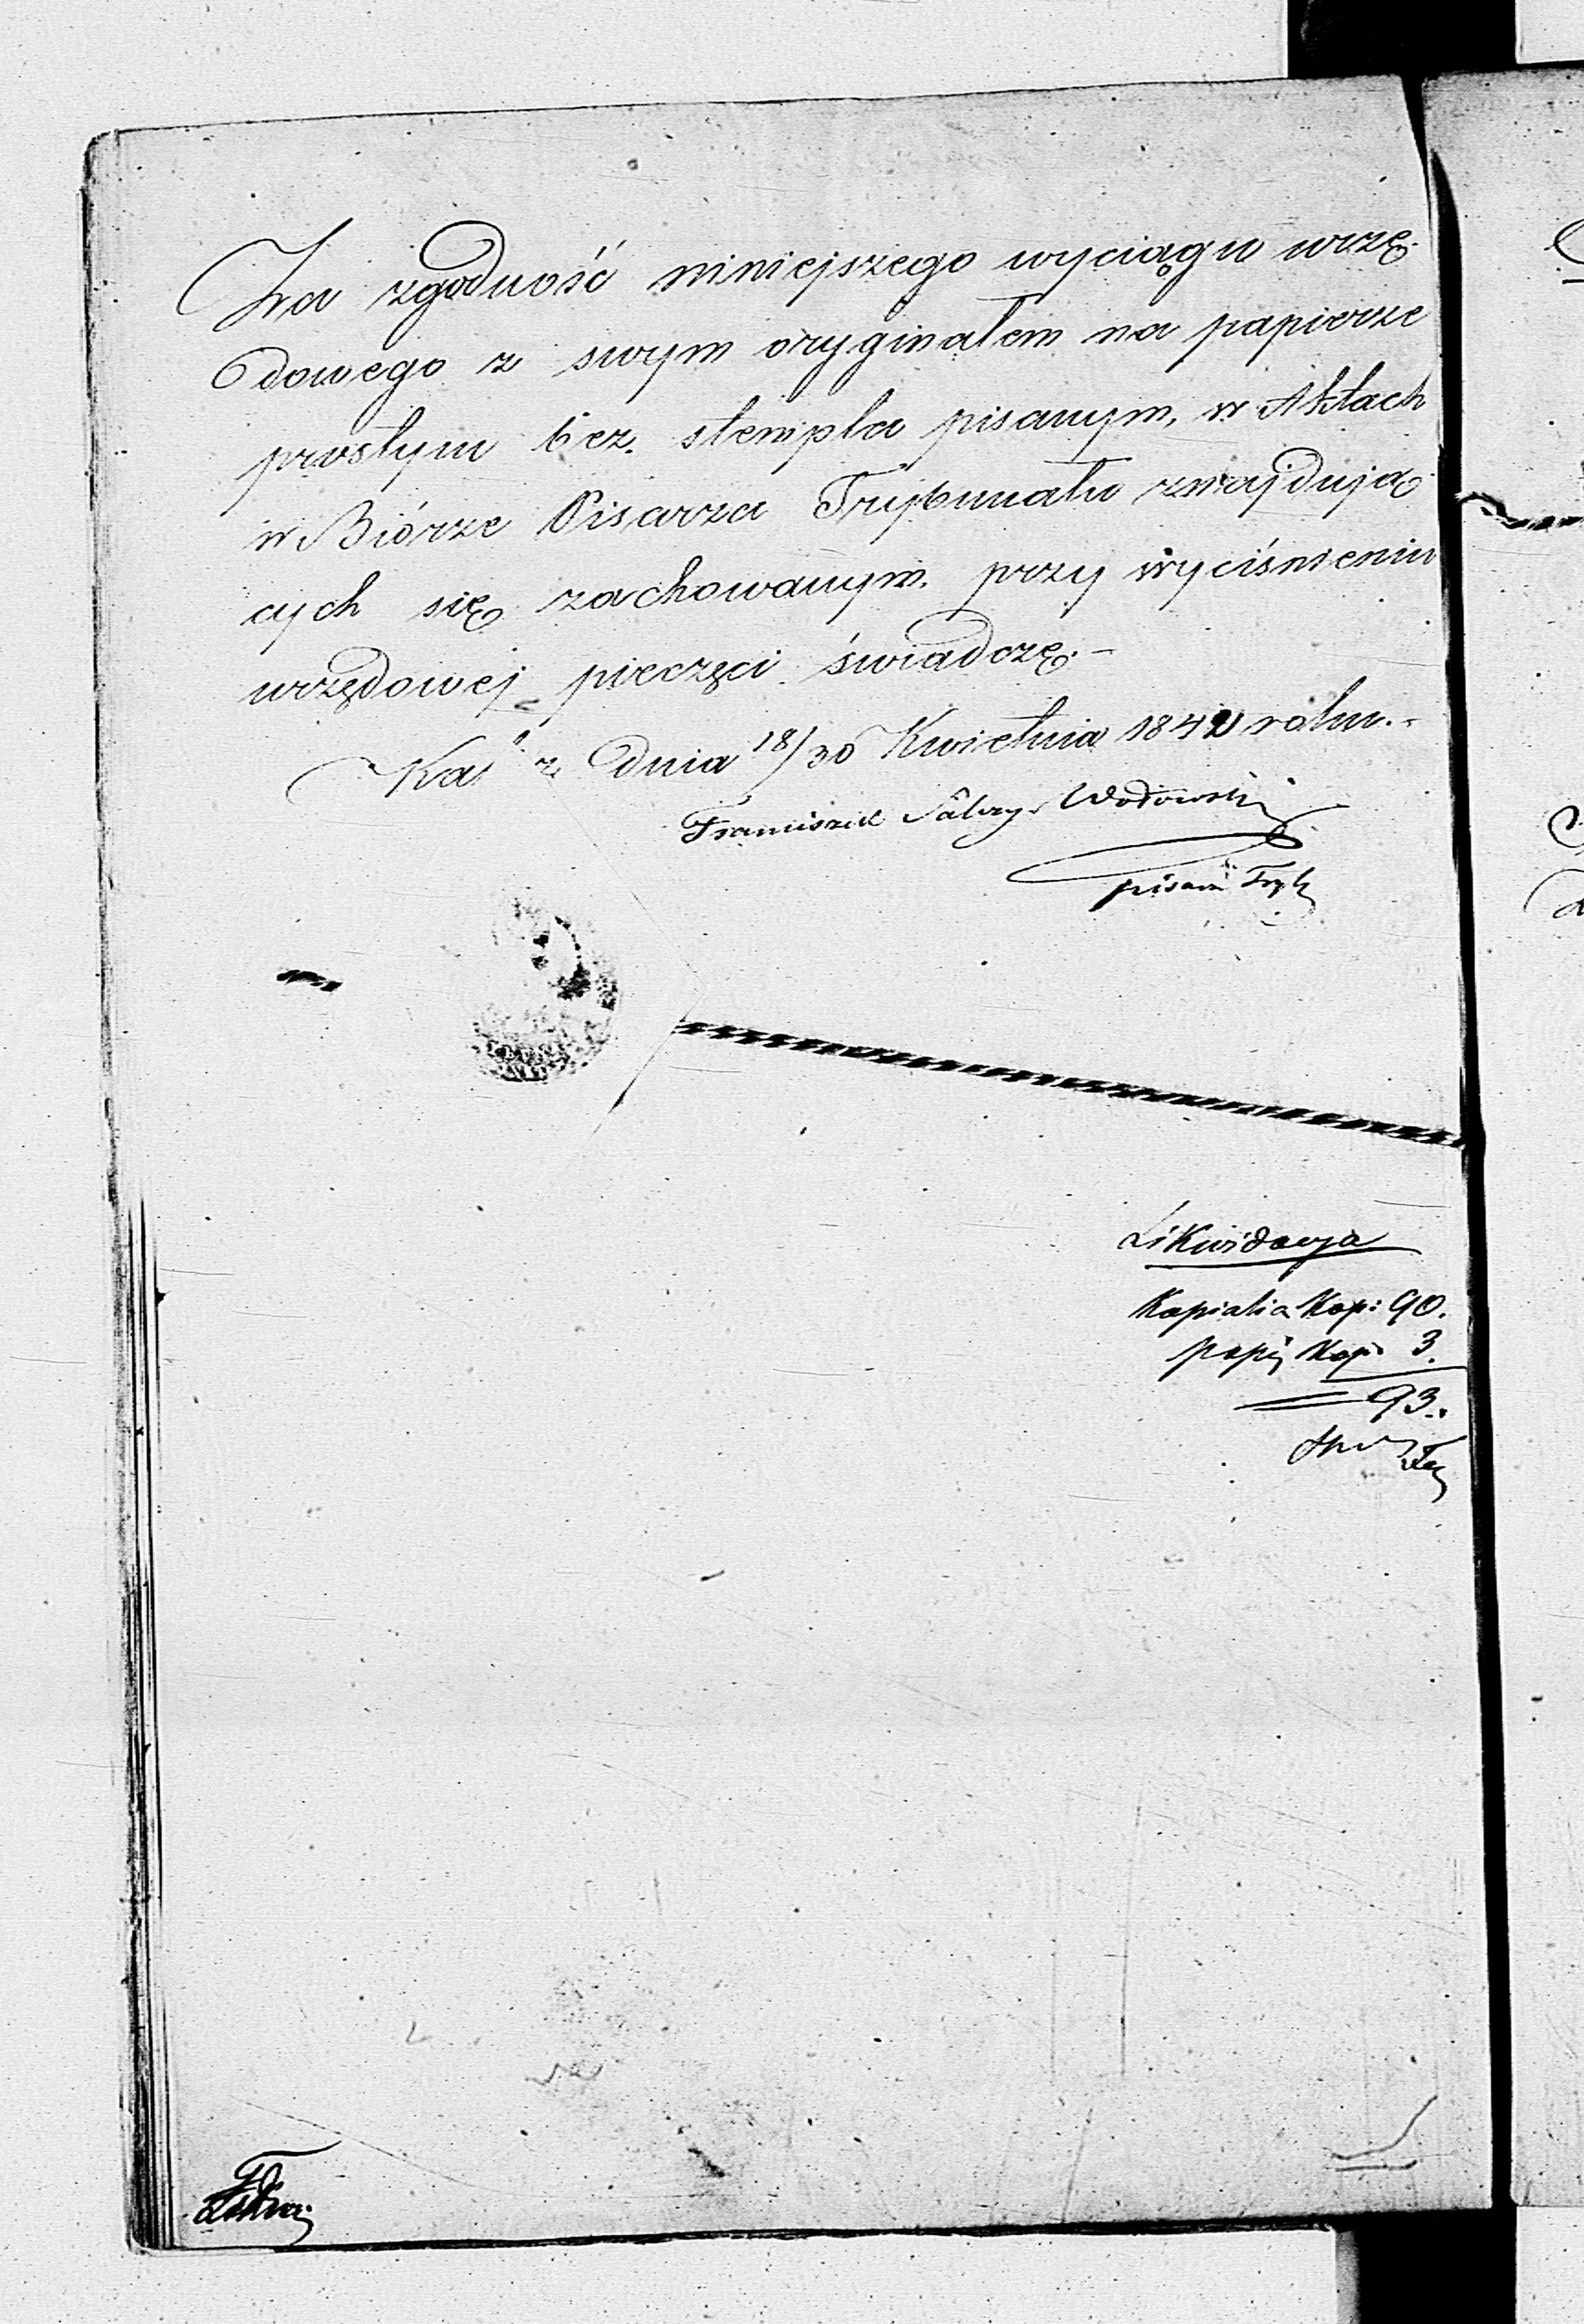 Za zgodność niniejszego wyciągu urzę
dowego z swym oryginałem na papierze
prostym bez stempla pisanym, w Aktach
w Biórze Pisarza Trybunału znajdują
cych się zachowanym. przy wyciśnieniu
urzędowej pieczęci świadczę.-
dnia 18/30 Kwietnia 1842 roku.-
Franciszek Salezy Wodowski
pisarz Tryb
Likwidacya
Kopialia Kop: 90.
papi Kop: 3.
93.